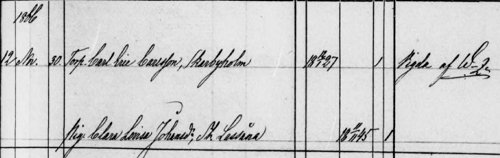 1866
12 Nov. 30. Torp. Carl Eric Carlsson, Skarbyholm 18 27 1 Vigda af
Pig. Clara Lovisa Johansd:, St. Lassåna 18 45 1